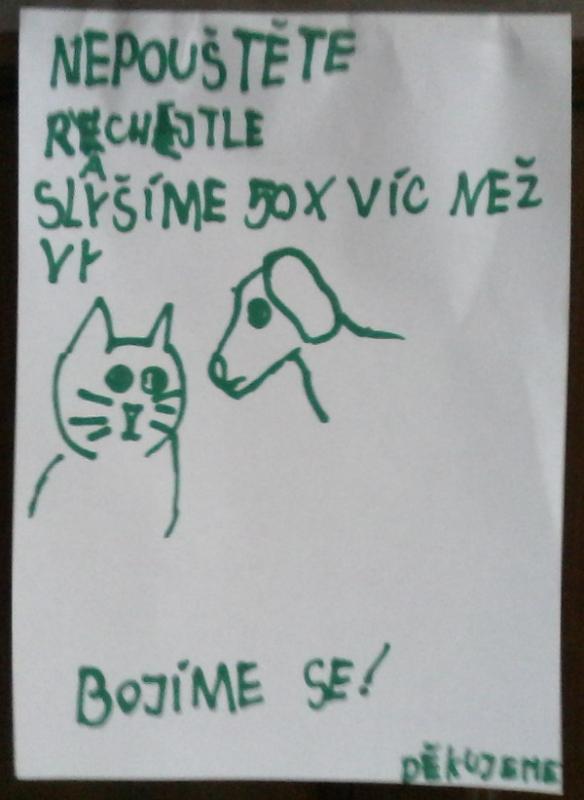 NEPOUŠTĚTE
RACHEJTLE
SLYŠÍME 50X VÍC NEŽ
VY
BOJÍME SE!
DĚKUJEME